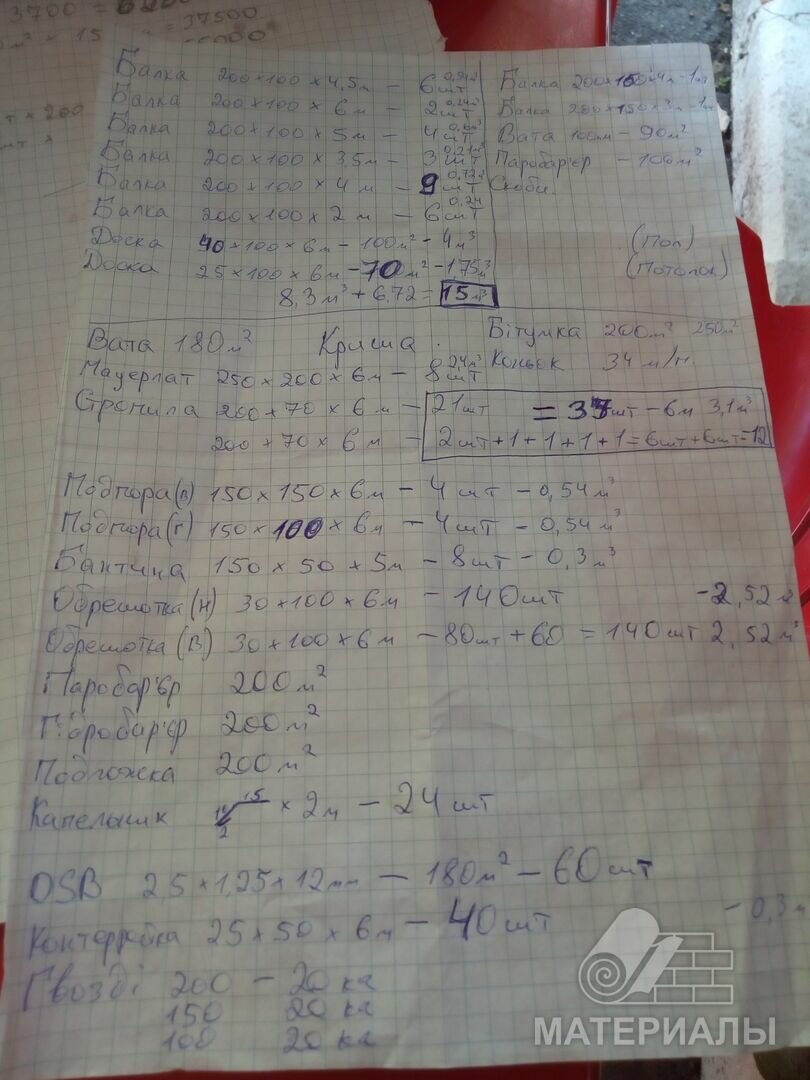 3700 =
37500
Балка 200×100×4,5м – 6шт
Балка 200×100×6м – 2шт 0,24м³
Балка 200×100×5м – 4шт
Балка 200×100×3,5м – 3шт 0,21м³
Балка 200×100×4м – 9шт 0,72
Балка 200×100×2м – 6шт 0,24
Доска 40×100×6м – 100м² – 4м³ (Пол)
Доска 25×100×6м – 70м² – 1,75м³ (Потолок)
8,3м³ + 6,72 = 15м³
Балка 200×150×4м – 1шт
Балка 200×150×3м – 1шт
Вата 100мм – 90м²
Паробар'єр – 100м²
Скоби
Вата 180м² Криша
Бітумка 200м² 250м²
Коньок 34 м/п.
Мауерлат 250×200×6м – 8шт 2,4м³
Стропила 200×70×6м – 21шт = 37шт – 6м 3,1м³
200×70×6м – 2шт+1+1+1+1=6шт+6шт=12
Подпора(в) 150×150×6м – 4шт – 0,54м³
Подпора(г) 150×100×6м – 4шт – 0,54м³
Бантина 150×50×5м – 8шт – 0,3м³
Обрешотка(н) 30×100×6м – 140шт – 2,52м³
Обрешотка(в) 30×100×6м – 80шт + 60 = 140шт 2,52м³
Паробар'єр 200м²
Гідробар'єр 200м²
Подложка 200м²
Капельник 15 2 × 2м – 24шт
OSB 2,5×1,25×12мм – 180м² – 60шт
Контррейка 25×50×6м – 40шт – 0,3м
Гвозді 200 – 20 ка
150 20 ка
100 20 ка
МАТЕРИАЛЫ